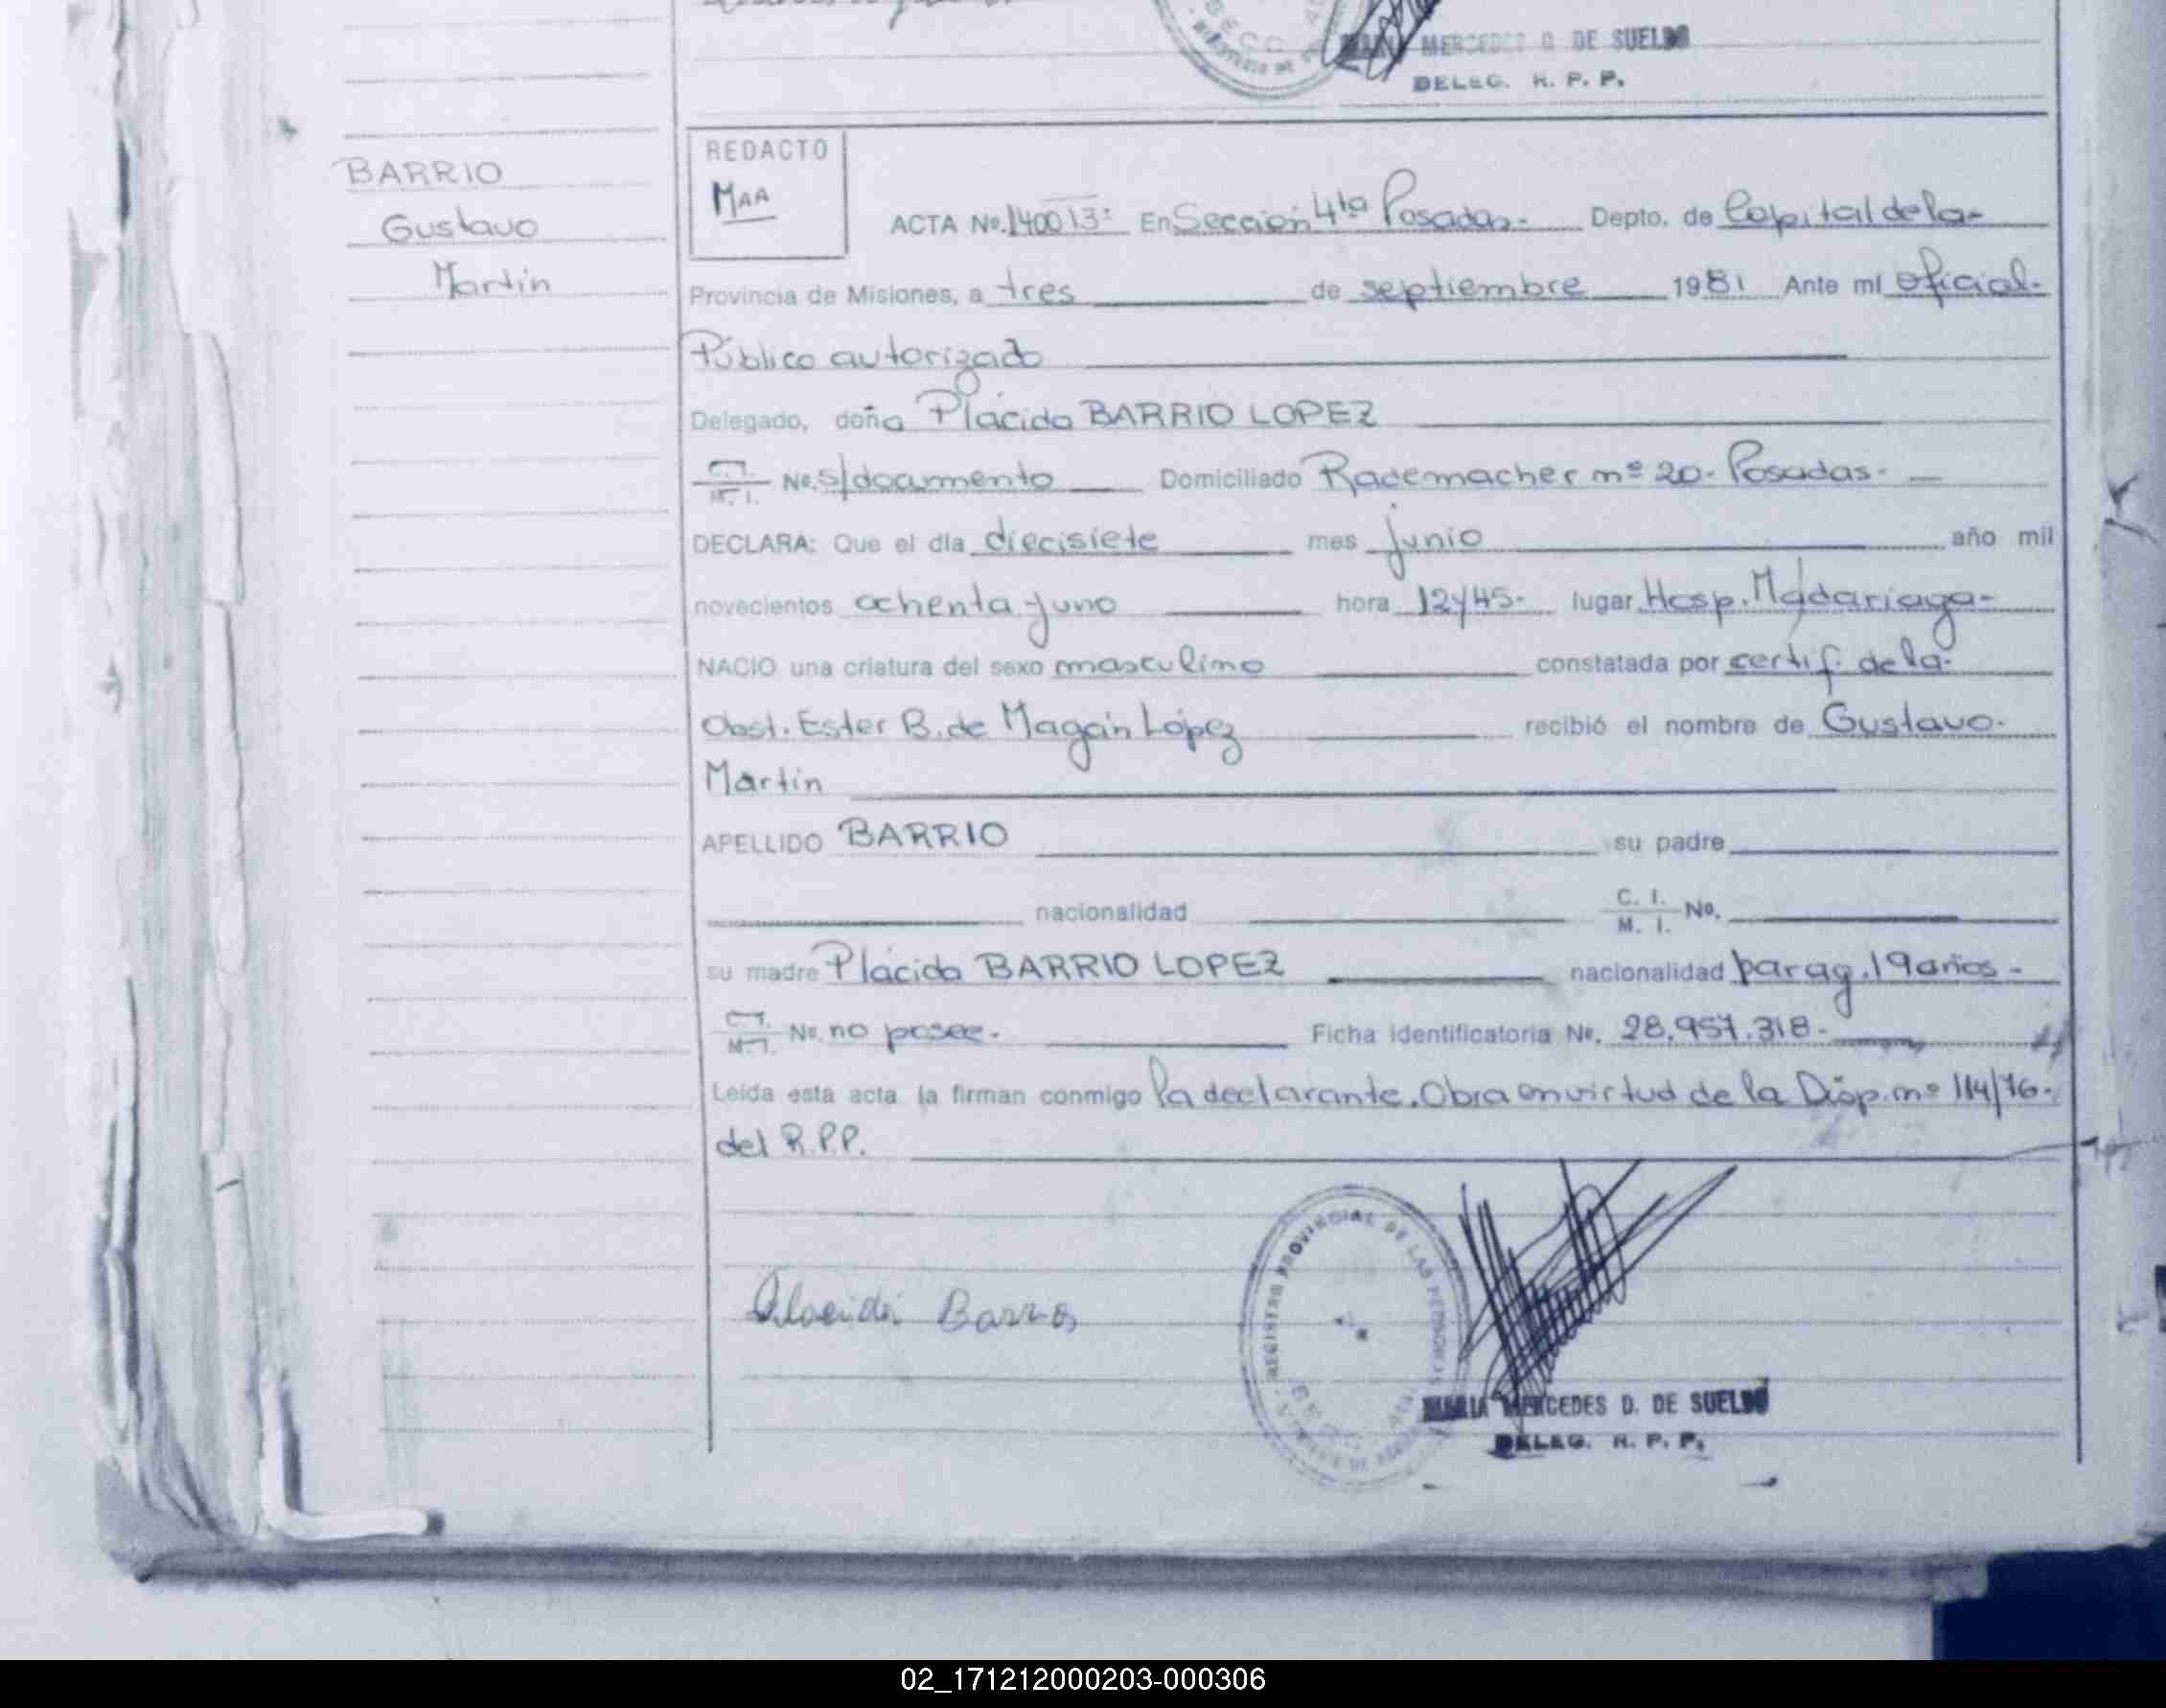 MERCEDES D. DE SUELDO
DELEG. R. P. P.
BARRIO
Gustavo
Martín
REDACTO
MAA
ACTA No. 140013: En Sección 4ta Posadas.- Depto. de Capital de la-
Provincia de Misiones, a tres de septiembre 1981 Ante mí oficial.
Público autorizado
Delegado, doña Plácida BARRIO LOPEZ
C.I. M.I. No. s/documento Domiciliado Rademacher nº 20- Posadas.-
DECLARA: Que el día diecisiete mes junio año mil
novecientos ochenta y uno hora 12y45- lugar Hosp. Madariaga-
NACIO una criatura del sexo masculino constatada por certif. de la-
Obst. Ester B. de Magán López recibió el nombre de Gustavo.
Martín
APELLIDO BARRIO su padre
nacionalidad C. I. M. I. No.
su madre Plácida BARRIO LOPEZ nacionalidad parag. 19años-
C.I. M.I. No. no posee. Ficha identificatoria No. 28.957.318-
Leída esta acta la firman conmigo la declarante. Obra en virtud de la Disp. nº 114/76.
del R.P.P.
REGISTRO PROVINCIAL DE LAS PERSONAS
Placida Barrio
MARIA MERCEDES D. DE SUELDO
DELEG. R. P. P.
02_171212000203-000306